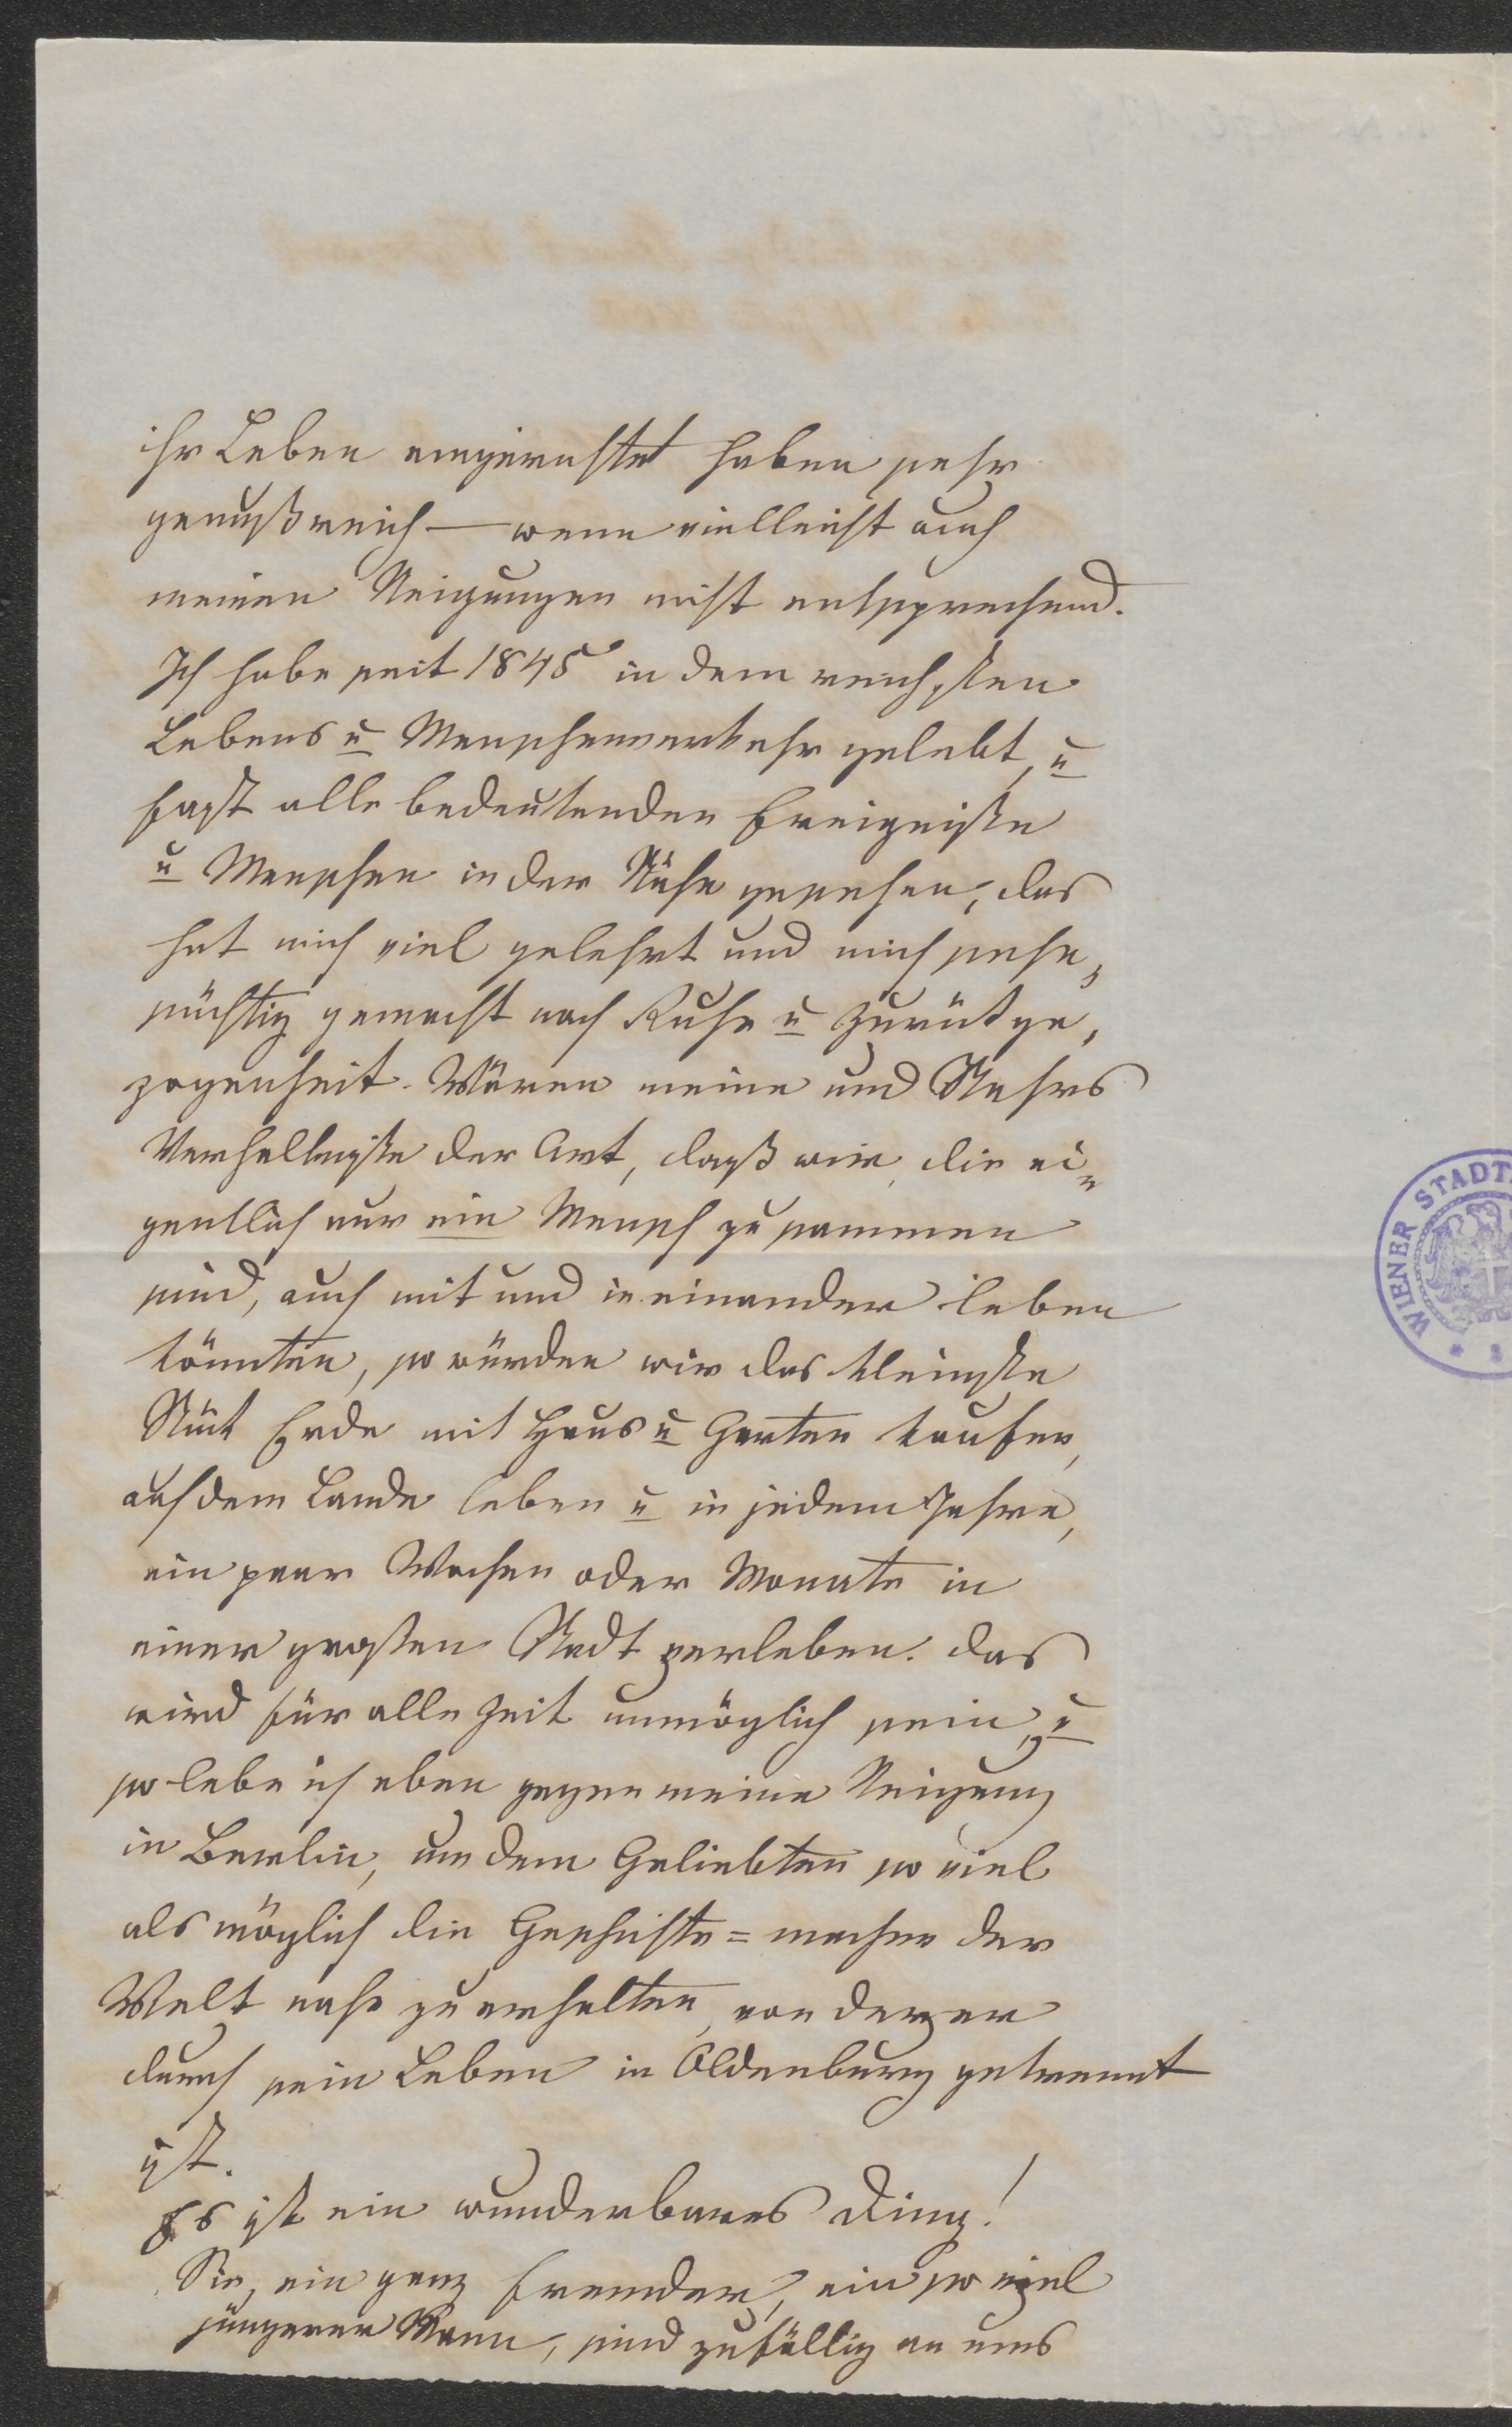 ihr Leben eingerichtet haben sehr
genußreich — wenn vielleicht auch
meinen Neigungen nicht entsprechend.
Ich habe seit 1845 in dem reichsten
Lebens u Menschenverkehr gelebt, u
fast alle bedeutenden Ereigniße
u Menschen in der Nähe gesehen, das
hat mich viel gelehrt und mich sehn„
süchtig gemacht nach Ruhe u Zurückge„
zogenheit. Wären meine und Stahrs
Verhältniße der Art, daß wir, die ei„
gentlich nur ein Mensch zusammen
sind, auch mit und in einander leben
könnten, so würden wir das kleinste
Stück Erde mit Haus u Garten kaufen,
auf dem Lande leben u in jedem Jahre,
ein paar Wochen oder Monate in
einer großen Stadt verleben. Das
wird für alle Zeit unmöglich sein, u
so lebe ich eben gegen meine Neigung
in Berlin, um dem Geliebten so viel
als möglich die Geschichte = machen der
Welt nahe zu erhalten, von der er
durch sein Leben in Oldenburg getrennt
ist.
Es ist ein wunderbares Ding!
Sie, ein ganz Fremder, ein so viel
jüngerer Mann, sind zufällig an uns
WIENER STADT